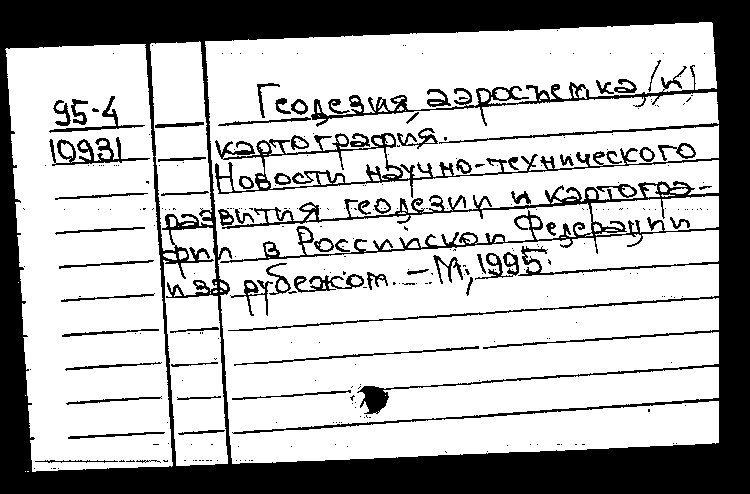 95-4
10931
Геодезия аэросъемка, (и)
картография.
Новости научно-технического
развития геодезии и картогра-
фии в Российской Федерации
и за рубежом. – М., 1995.